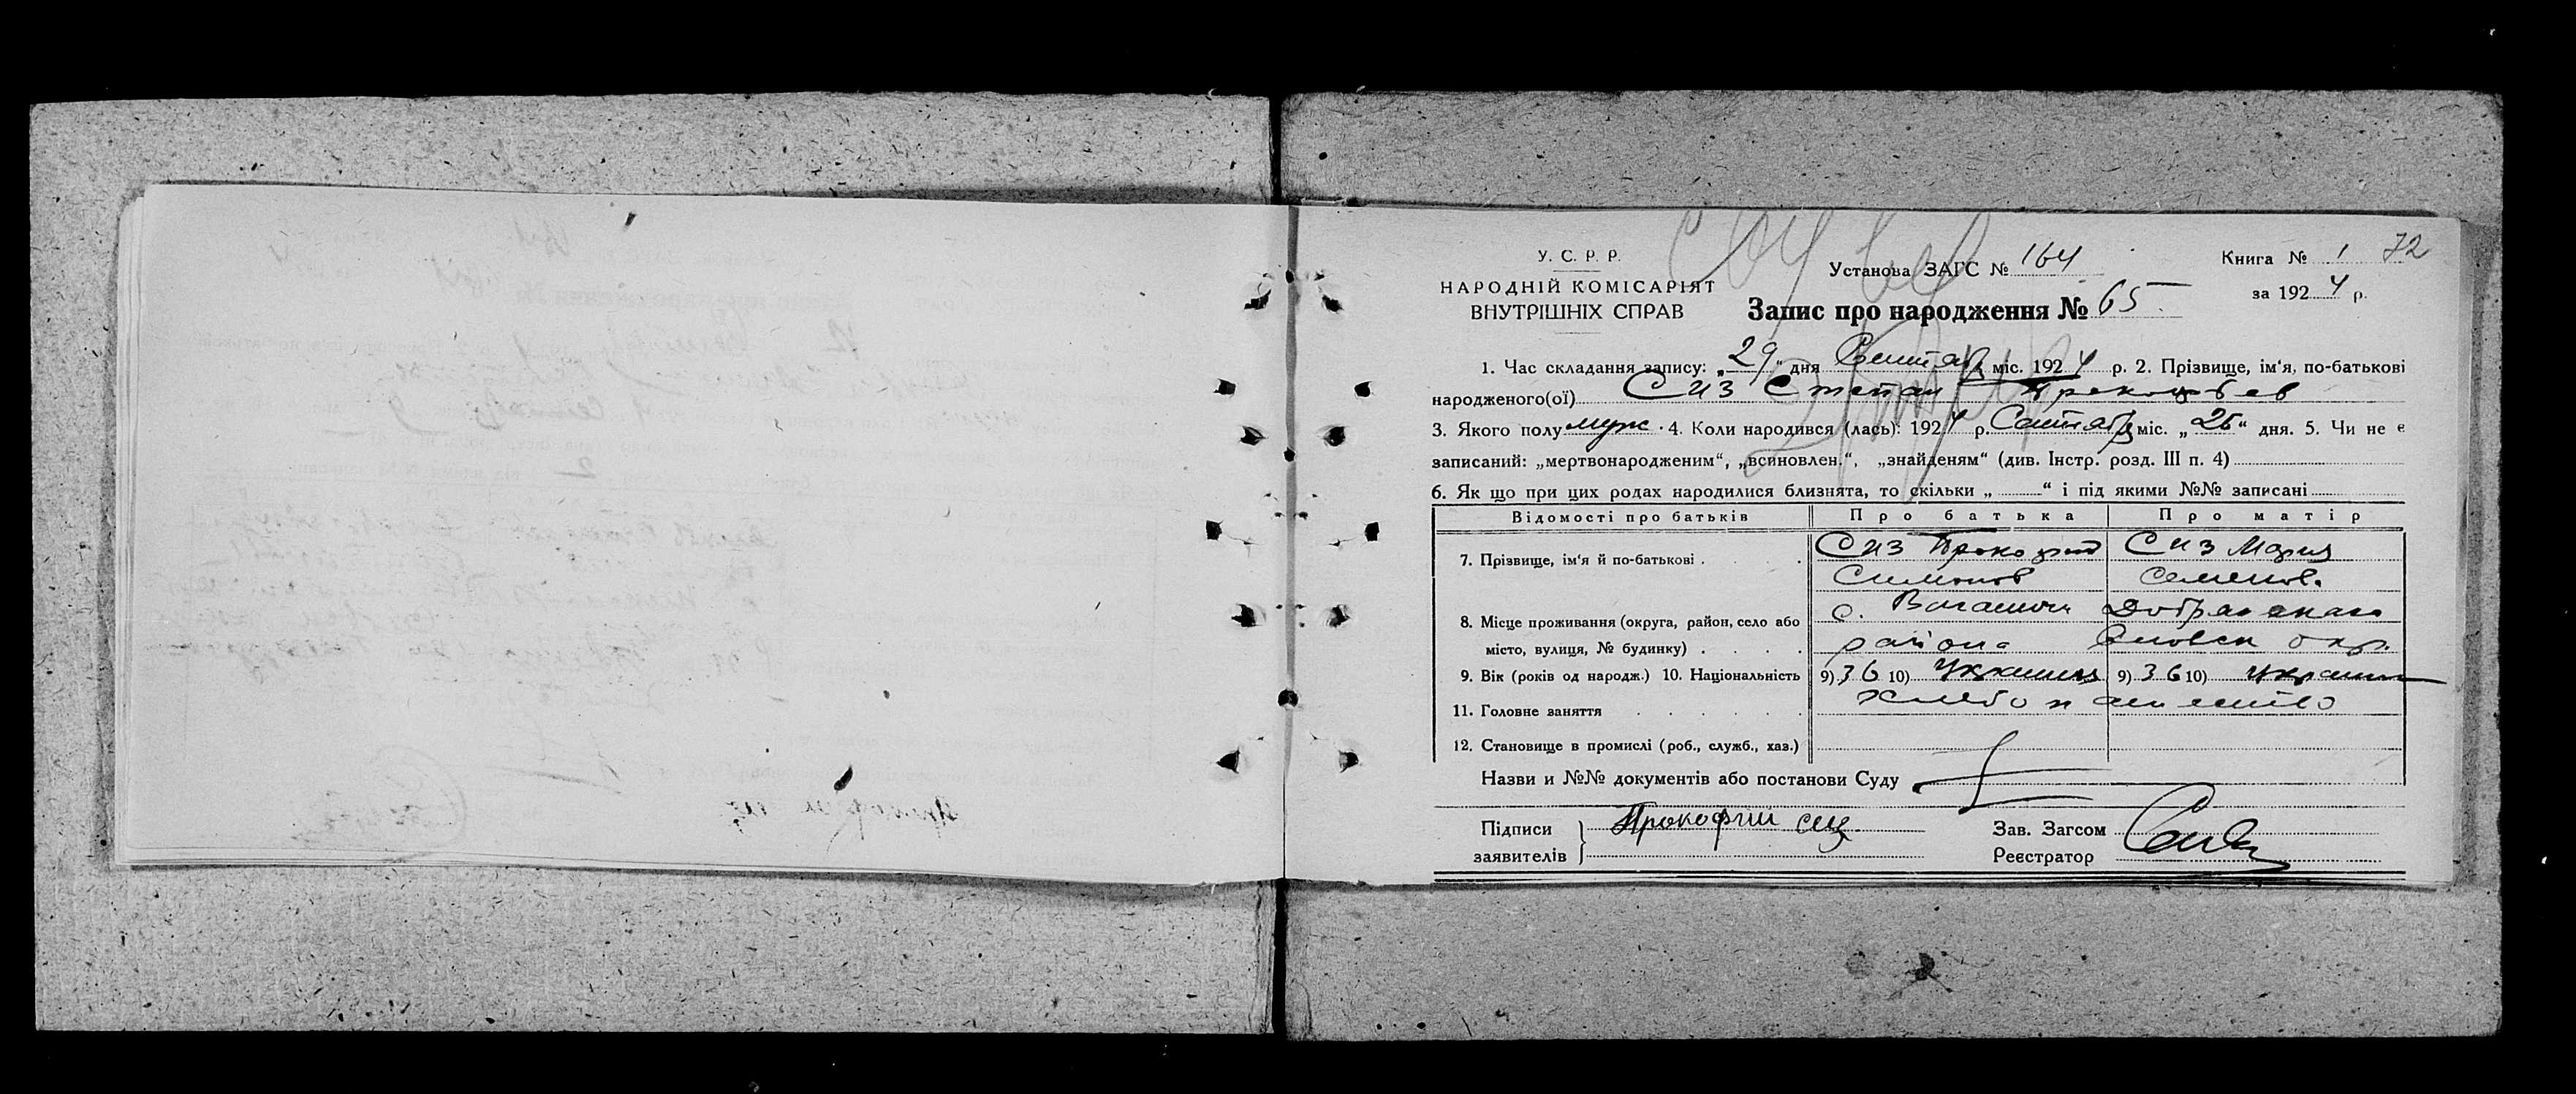 У. С. Р. Р.
НАРОДНІЙ КОМІСАРІЯТ
ВНУТРІШНІХ СПРАВ
Установа ЗАГС № 164
Книга № 1 72
за 1924 р.
Запис про народження № 65.
1. Час складання запису: „29" дня Сентяб міс. 1924 р. 2. Прізвище, ім'я, по-батькові
народженого(ої) Сиз Степан Прокофьев
3. Якого полу муж. 4. Коли народився (лась): 1924 р. Сентяб міс. „26" дня. 5. Чи не є
записаний: „мертвонародженим", „всиновлен.", „знайденям" (див. Інстр. розд. III п. 4)
6. Як що при цих родах народилися близнята, то скільки „ " і під якими №№ записані
Відомості про батьків Про батька Про матір
7. Прізвище, ім'я й по-батькові . . Сиз Прокофий Сиз Мария
Симонов Семенов.
8. Місце проживання (округа, район, село або с.
місто, вулиця, № будинку) . . . . района окр.
9. Вік (років од народж.) 10. Національність 9) 36 10) 9) 36 10)
11. Головне заняття . . . . . . хлебопашество
12. Становище в промислі (роб., служб., хаз.)
Назви и №№ документів або постанови Суду
Підписи
заявителів
Прокофий сиз
Зав. Загсом
Реєстратор